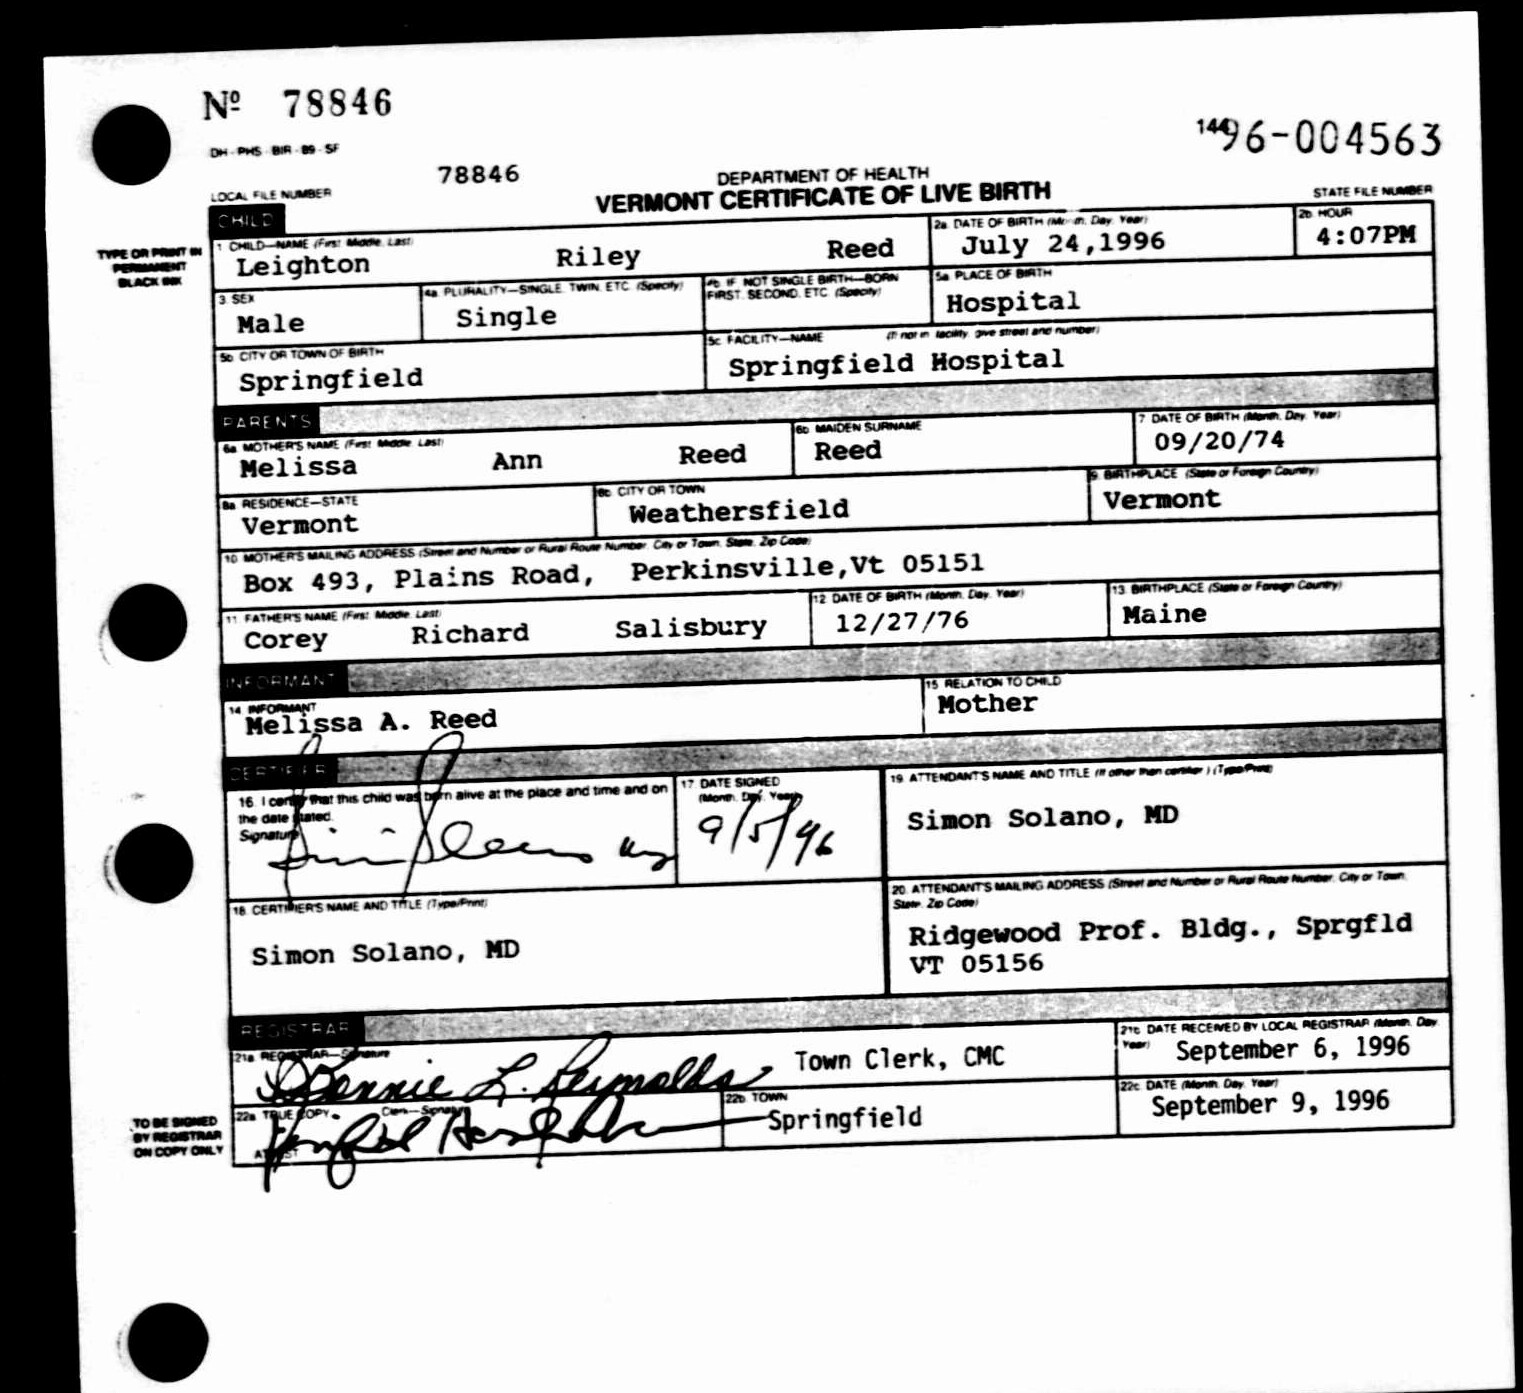 Nº 78846
DH - PHS - BIR - 89 - SF
14496-004563
LOCAL FILE NUMBER 78846
DEPARTMENT OF HEALTH
VERMONT CERTIFICATE OF LIVE BIRTH
STATE FILE NUMBER
CHILD
TYPE OR PRINT IN
PERMANENT
BLACK INK
1 CHILD—NAME (First Middle Last)
Leighton Riley Reed
2a. DATE OF BIRTH (Month, Day, Year)
July 24,1996
2b. HOUR
4:07PM
3. SEX
Male
4a. PLURALITY—SINGLE, TWIN, ETC. (Specify)
Single
4b. IF NOT SINGLE BIRTH—BORN
FIRST, SECOND, ETC. (Specify)
5a. PLACE OF BIRTH
Hospital
5b. CITY OR TOWN OF BIRTH
Springfield
5c. FACILITY—NAME (If not in facility, give street and number)
Springfield Hospital
PARENTS
6a. MOTHER'S NAME (First Middle Last)
Melissa Ann Reed
6b. MAIDEN SURNAME
Reed
7 DATE OF BIRTH (Month, Day, Year)
09/20/74
8a. RESIDENCE—STATE
Vermont
8c. CITY OR TOWN
Weathersfield
9. BIRTHPLACE (State or Foreign Country)
Vermont
10. MOTHER'S MAILING ADDRESS (Street and Number or Rural Route Number, City or Town, State, Zip Code)
Box 493, Plains Road, Perkinsville,Vt 05151
11. FATHER'S NAME (First Middle Last)
Corey Richard Salisbury
12 DATE OF BIRTH (Month, Day, Year)
12/27/76
13. BIRTHPLACE (State or Foreign Country)
Maine
INFORMANT
14 INFORMANT
Melissa A. Reed
15 RELATION TO CHILD
Mother
CERTIFIER
16. I certify that this child was born alive at the place and time and on
the date stated.
Signature
17 DATE SIGNED
(Month, Day, Year)
9/5/96
19. ATTENDANT'S NAME AND TITLE (If other than certifier) (Type/Print)
Simon Solano, MD
18. CERTIFIER'S NAME AND TITLE (Type/Print)
Simon Solano, MD
20. ATTENDANT'S MAILING ADDRESS (Street and Number or Rural Route Number, City or Town,
State, Zip Code)
Ridgewood Prof. Bldg., Sprgfld
VT 05156
REGISTRAR
21a. REGISTRAR—Signature
Bonnie L. Reynolds Town Clerk, CMC
21c. DATE RECEIVED BY LOCAL REGISTRAR (Month, Day,
Year) September 6, 1996
TO BE SIGNED
BY REGISTRAR
ON COPY ONLY
22a. TRUE COPY- Clerk—Signature
ATTEST
22b. TOWN
Springfield
22c. DATE (Month, Day, Year)
September 9, 1996